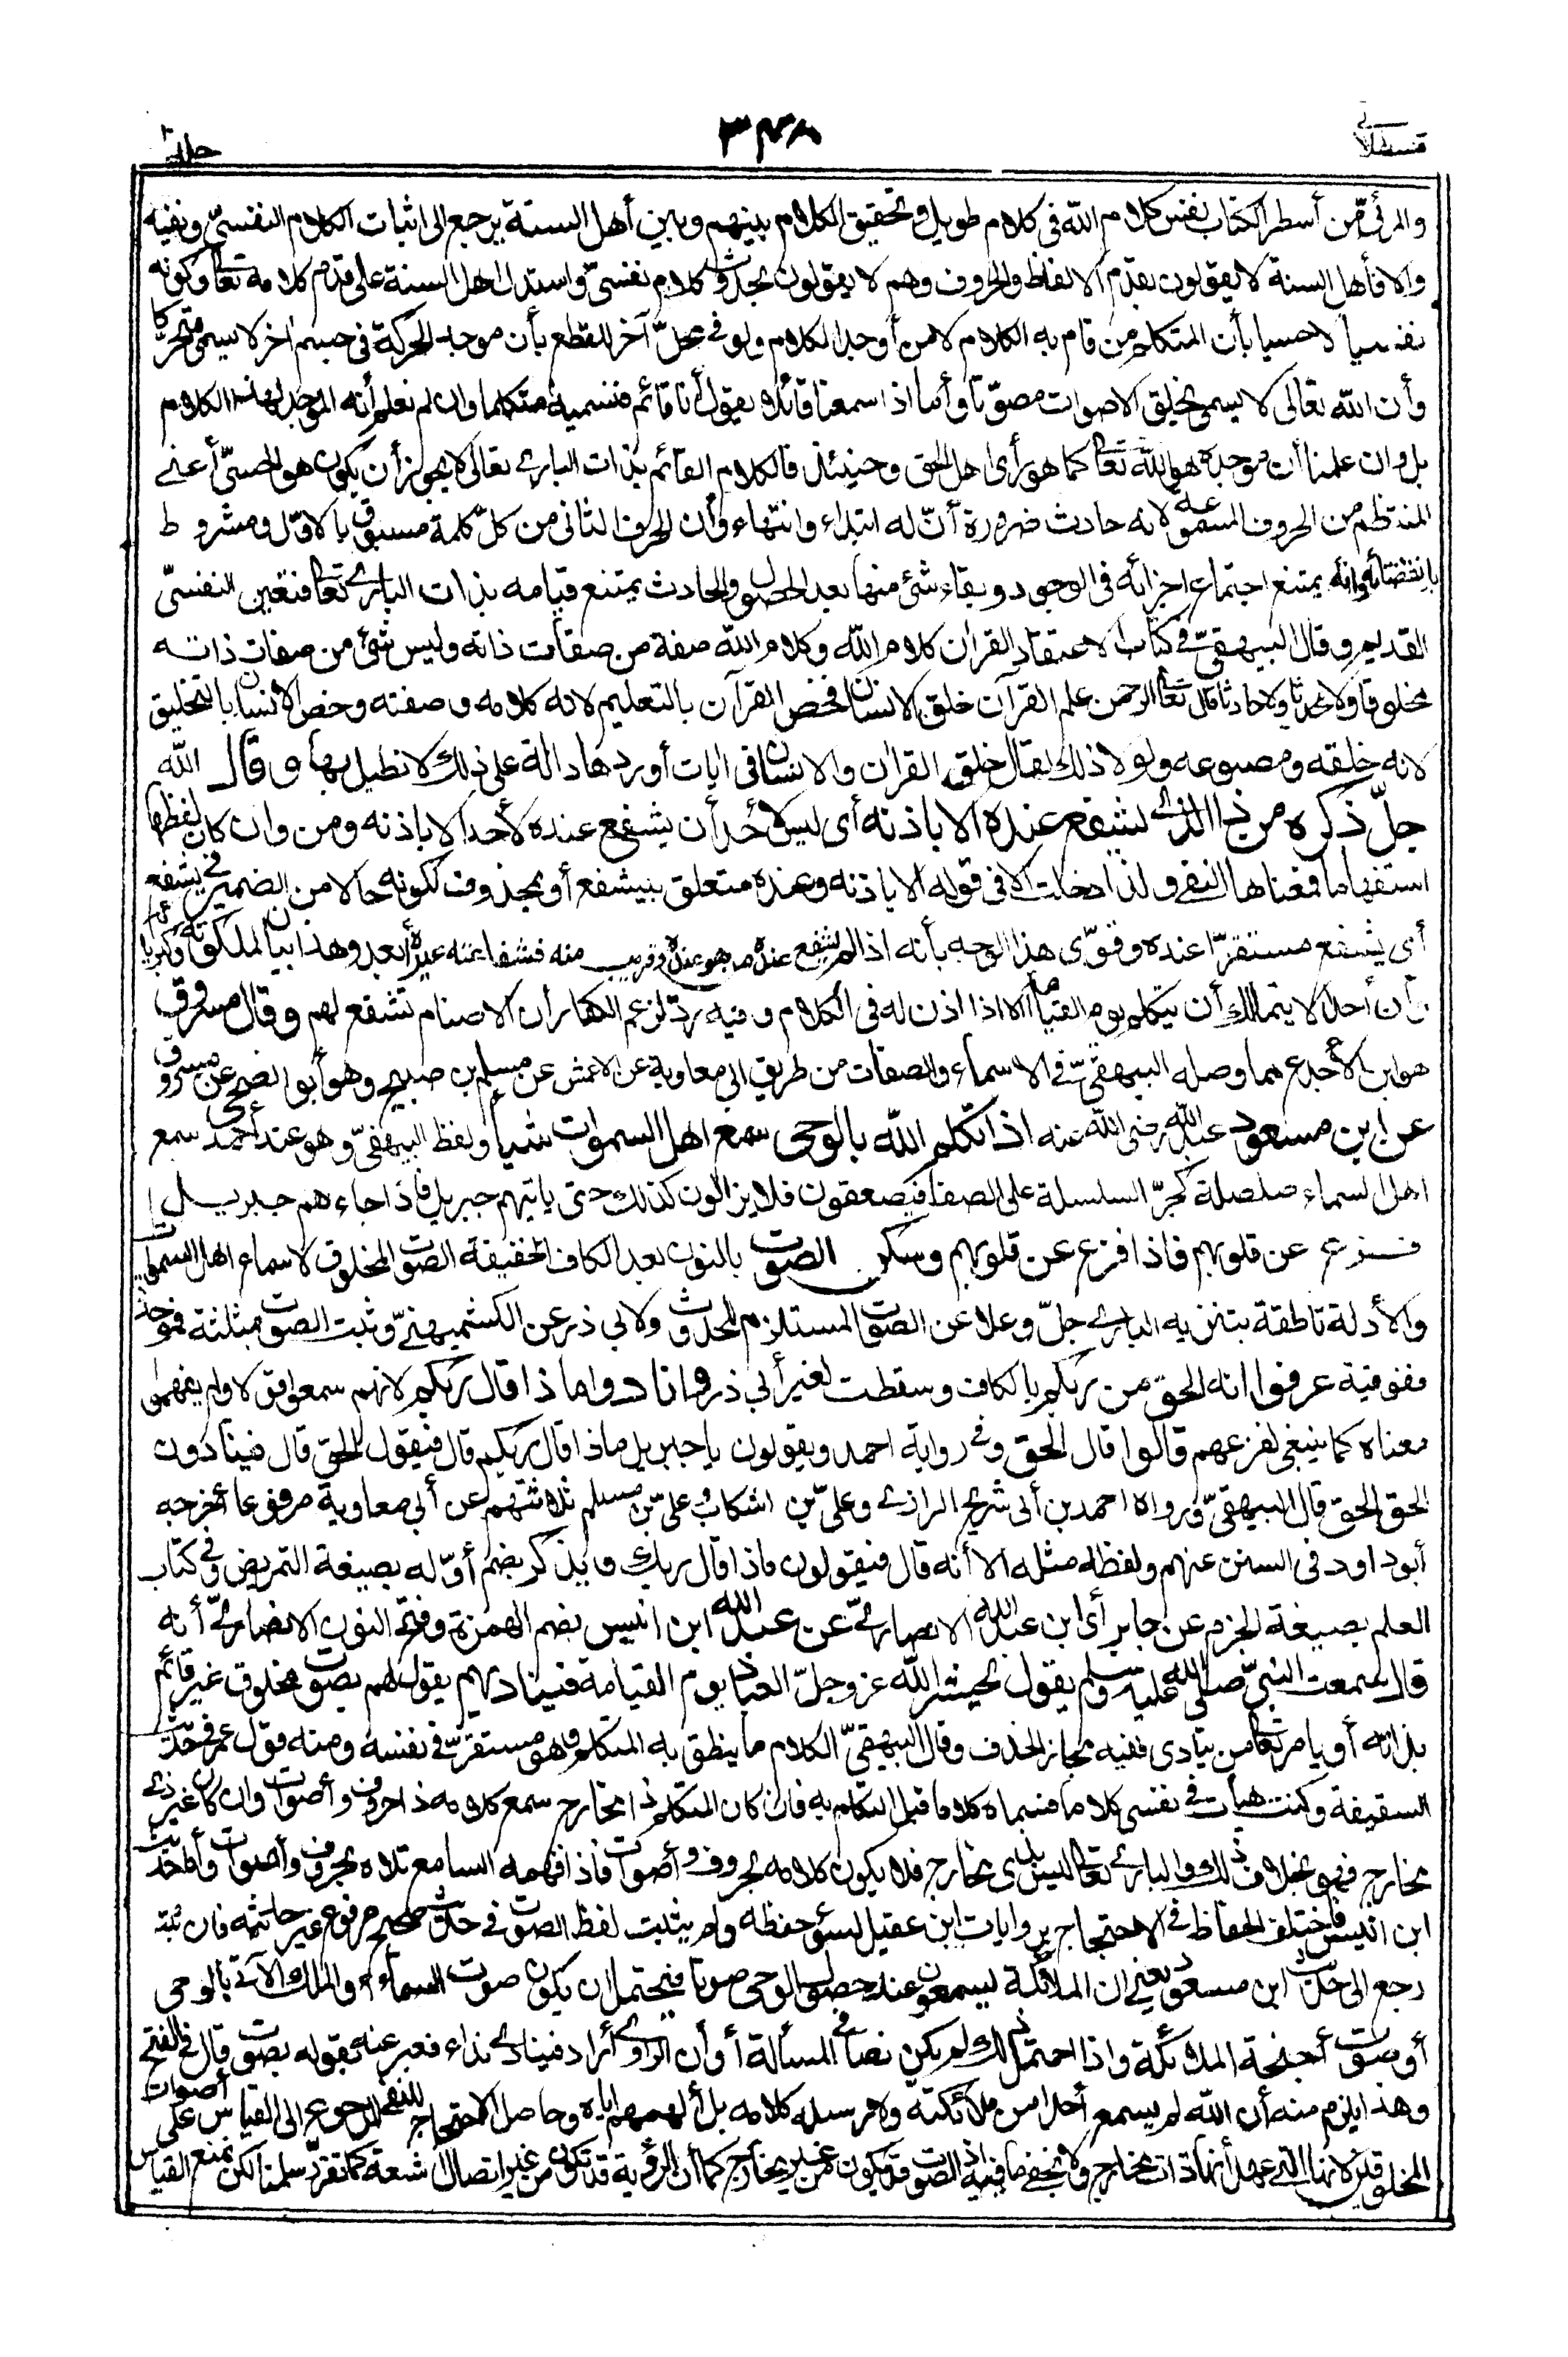 قسطلانی
٣٤٨
جلد
والمرئی من أسطر الكتاب نفس كلام الله فی كلام طويل وتحقيق الكلام بينهم وبين أهل السنة يرجع الی اثبات الكلام النفسیّ ونفيه
والا فأهل السنة لا يقولون بقدم الالفاظ والحروف وهم لا يقولون بحدوث كلام نفسیّ واستدل اهل السنة علی قدم كلامه تعالی وكونه
نفسيا لا حسيا بأن المتكلم من قام به الكلام لا من أوجد الكلام ولو فی محلّ آخر للقطع بأن موجد الحركة فی جسم اخر لا يسمی متحركا
وأن الله تعالی لا يسمی بخلق الاصوات مصوّتا وأما اذا سمعنا قائلا يقول أنا قائم فنسميه متكلما وان لم نعلم أنه الموجد لهذا الكلام
بل وان علمنا أن موجده هو الله تعالی كما هو رأی اهل الحق وحينئذ فالكلام القائم بذات الباری تعالی لا يجوز أن يكون هو الحسیّ أعنی
المنتظم من الحروف المسموعة لانه حادث ضرورة أنّ له ابتداء وانتهاء وأن الحرف الثانی من كلّ كلمة مسبوق بالاوّل ومشروط
بانقضائه وانه يمتنع اجتماع اجزائه فی الوجود وبقاء شئ منها بعد الحصول والحادث يمتنع قيامه بذات الباری تعالی فتعين النفسیّ
القديم وقال البيهقیّ فی كتاب الاعتقاد القران كلام الله وكلام الله صفة من صفات ذاته وليس شئ من صفات ذاته
مخلوقا ولا محدثا ولا حادثا قال تعالی الرحمن علم القرآن خلق الانسان فخص القرآن بالتعليم لانه كلامه وصفته وخص الانسان بالتخليق
لانه خلقه ومصنوعه ولولا ذلك لقال خلق القران والانسان فی ايات أوردها دالة علی ذلك لا نطيل بها وقال الله
جلّ ذكره من ذا الذی يشفع عنده الا باذنه أی ليس لأحد أن يشفع عنده لأحد الا باذنه ومن وان كان لفظها
استفهاما فمعناها النفی ولذا دخلت الا فی قوله الا باذنه وعنده متعلق بيشفع أو بمحذوف لكونه حالا من الضمير فی يشفع
أی يشفع مستقرّا عنده وقوّی هذا الوجه بأنه اذا لم يشفع عنده من هو عنده وقريب منه فشفاعة غيره أبعد وهذا بيان لملكوته وكبريائه
وأن أحدا لا يتمالك أن يتكلم يوم القيامة الا اذا اذن له فی الكلام وفيه ردّ لزعم الكفار ان الاصنام تشفع لهم وقال مسروق
هو ابن الأجدع مما وصله البيهقیّ فی الاسماء والصفات من طريق ابی معاوية عن الاعمش عن مسلم بن صبيح وهو أبو الضحی عن مسروق
عن ابن مسعود عبد الله رضی الله عنه اذا تكلم الله بالوحی سمع اهل السموات شيأ ولفظ البيهقیّ وهو عند أحمد سمع
اهل السماء صلصلة كجرّ السلسلة علی الصفا فيصعقون فلا يزالون كذلك حتی ياتيهم جبريل فاذا جاءهم جبريل
فزع عن قلوبهم فاذا فزع عن قلوبهم وسكن الصوت بالنون بعد الكاف الخفيفة الصوت المخلوق لاسماع اهل السموات
والأدلة ناطقة بتنزيه الباری جلّ وعلا عن الصوت المستلزم للحدوث ولابی ذر عن الكشميهنیّ وثبت الصوت بمثلثة فموحدة
ففوقية عرفوا انه الحق من ربكم بالكاف وسقطت لغير أبی ذر ونادوا ماذا قال ربكم لانهم سمعوا قولا ولم يفهموا
معناه كما ينبغی لفزعهم قالوا قال الحق وفی رواية احمد ويقولون يا جبريل ماذا قال ربكم قال فيقول الحق قال فينادون
الحق الحق قال البيهقیّ ورواه احمد بن أبی شريح الرازی وعلیّ بن اشكاب وعلیّ بن مسلم ثلاثتهم عن أبی معاوية مرفوعا أخرجه
أبو داود فی السنن عنهم ولفظه مثله الا أنه قال فيقولون ماذا قال ربك ويذكر بضم أوّله بصيغة التمريض وفی كتاب
العلم بصيغة الجزم عن جابر أی ابن عبد الله الانصاریّ عن عبد الله ابن انيس بضم الهمزة وفتح النون الانصاریّ أنه
قال سمعت النبیّ صلی الله عليه وسلم يقول يحشر الله عز وجلّ العباد يوم القيامة فيناديهم يقول لهم بصوت مخلوق غير قائم
بذاته أو يامر تعالی من ينادی ففيه مجاز الحذف وقال البيهقیّ الكلام ما ينطق به المتكلم وهو مستقرّ فی نفسه ومنه قول عمر فی حديث
السقيفة وكنت هيأت فی نفسی كلاما فسماه كلاما قبل التكلم به فان كان المتكلم ذا مخارج سمع كلامه ذا حروف وأصوات وان كان غير ذی
مخارج فهو بخلاف ذلك والباری تعالی ليس بذی مخارج فلا يكون كلامه بحروف وأصوات فاذا فهمه السامع تلاه بحروف وأصوات وأما حديث
ابن انيس فاختلف الحفاظ فی الاحتجاج بروايات ابن عقيل لسوء حفظه ولم يثبت لفظ الصوت فی حديث صحيح مرفوع غير حديثه فان ثبت
رجع الی حديث ابن مسعود يعنی ان الملائكة يسمعون عند حصول الوحی صوتا فيحتمل ان يكون صوت السماء او الملك الآتی بالوحی
أو صوت أجنحة الملائكة واذا احتمل ذلك لم يكن نصا فی المسألة أو أن الراوی أراد فينادی نداء فعبر عنه بقوله بصوت قال فی الفتح
وهذا يلزم منه أن الله لم يسمع أحدا من ملائكته ولا رسله كلامه بل ألهمهم اياه وحاصل الاحتجاج للنفی الرجوع الی القياس علی أصوات
المخلوقين لانها التی عهد أنها ذات مخارج ولا يخفی ما فيه اذ الصوت قد يكون من غير مخارج كما أن الرؤية قد تكون من غير اتصال أشعة كما تقرّر سلمنا لكن نمنع القياس